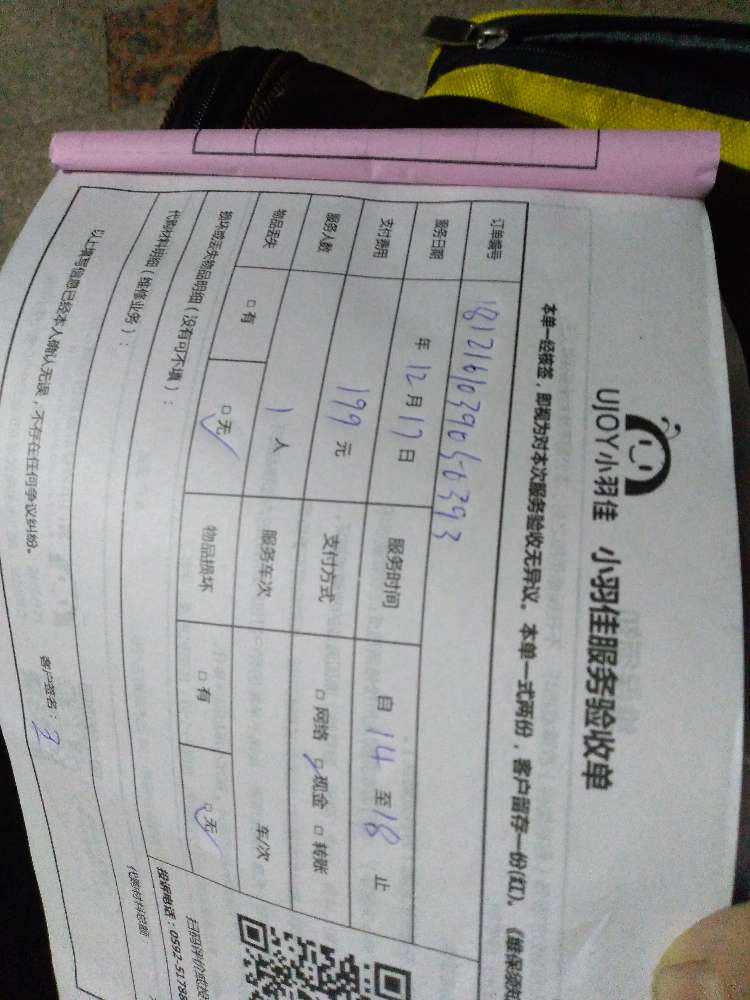 UJOY小羽佳 小羽佳服务验收单
本单一经核签，即视为对本次服务验收无异议。本单一式两份，客户留存一份(红)。
订单编号 1812161039050393
服务日期 年 12 月 17 日 服务时间 自 14 至 18 止
支付费用 199 元 支付方式 □网络 □现金 □转账
服务人数 1 人 服务车次 车/次
物品丢失 □有 □无 物品损坏 □有 □无
损坏或丢失物品明细（没有可不填）：
代购材料明细（维修业务）：
代购材料总额
以上填写信息已经本人确认无误，不存在任何争议纠纷。 客户签名：
扫码评价或投
投诉电话：0592-51786